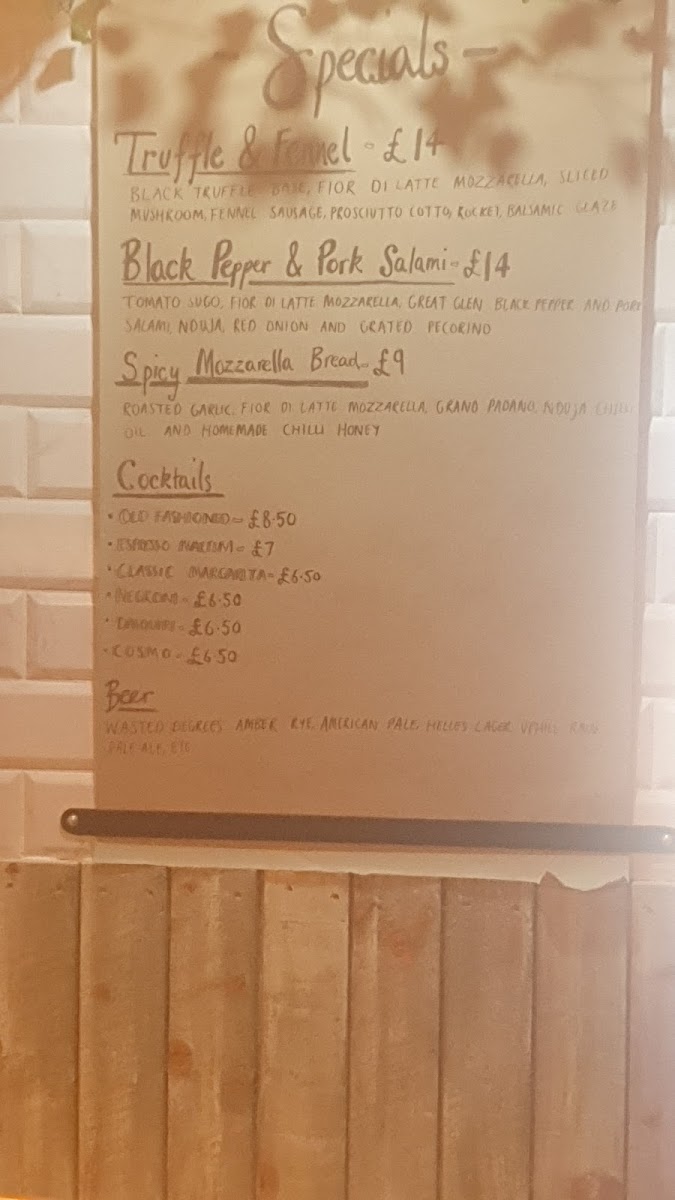 - Specials -
Truffle & Fennel - £14
BLACK TRUFFLE BASE, FIOR DI LATTE MOZZARELLA, SLICED
MUSHROOM, FENNEL SAUSAGE, PROSCIUTTO COTTO, ROCKET, BALSAMIC GLAZE
Black Pepper & Pork Salami - £14
TOMATO SUGO, FIOR DI LATTE MOZZARELLA, GREAT GLEN BLACK PEPPER AND PORK
SALAMI, NDUJA, RED ONION AND GRATED PECORINO
Spicy Mozzarella Bread - £9
ROASTED GARLIC, FIOR DI LATTE MOZZARELLA, GRANO PADANO, NDUJA CHILLI
OIL AND HOMEMADE CHILLI HONEY
Cocktails
• OLD FASHIONED - £8.50
• ESPRESSO MARTINI - £7
• CLASSIC MARGARITA - £6.50
• NEGRONI - £6.50
• DAIQUIRI - £6.50
• COSMO - £6.50
Beer
WASTED DEGREES AMBER RYE, AMERICAN PALE, HELLES LAGER,
PALE ALE,